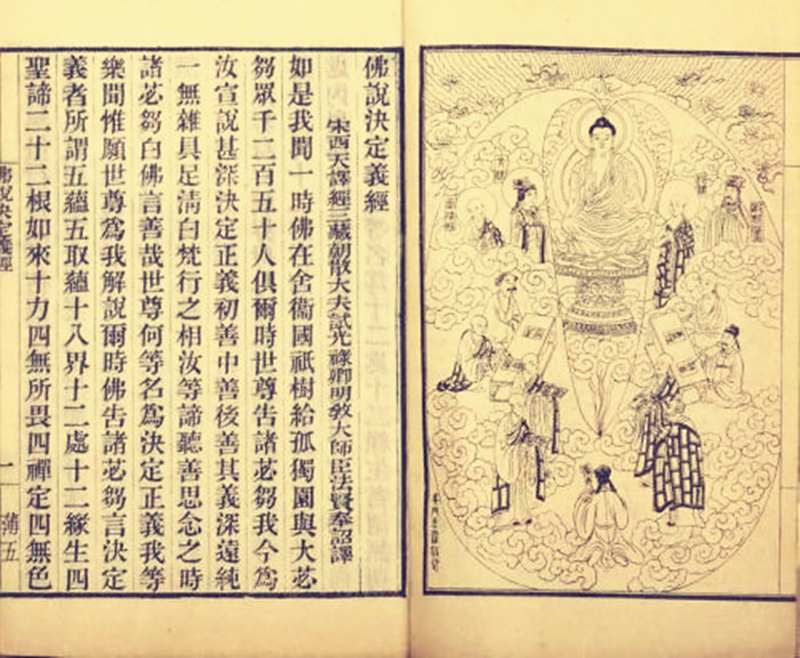 佛說決定義經
宋西天譯經三藏朝散大夫試光祿卿明教大師臣法賢奉詔譯
如是我聞一時佛在舍衞國祇樹給孤獨園與大苾
芻眾千二百五十人俱爾時世尊告諸苾芻我今爲
汝宣說甚深決定正義初善中善後善其義深遠純
一無雜具足清白梵行之相汝等諦聽善思念之時
諸苾芻白佛言善哉世尊何等名爲決定正義我等
樂聞惟願世尊爲我解說爾時佛告諸苾芻言決定
義者所謂五蘊五取蘊十八界十二處十二緣生四
聖諦二十二根如來十力四無所畏四禪定四無色
佛說決定義經 一 蒲五